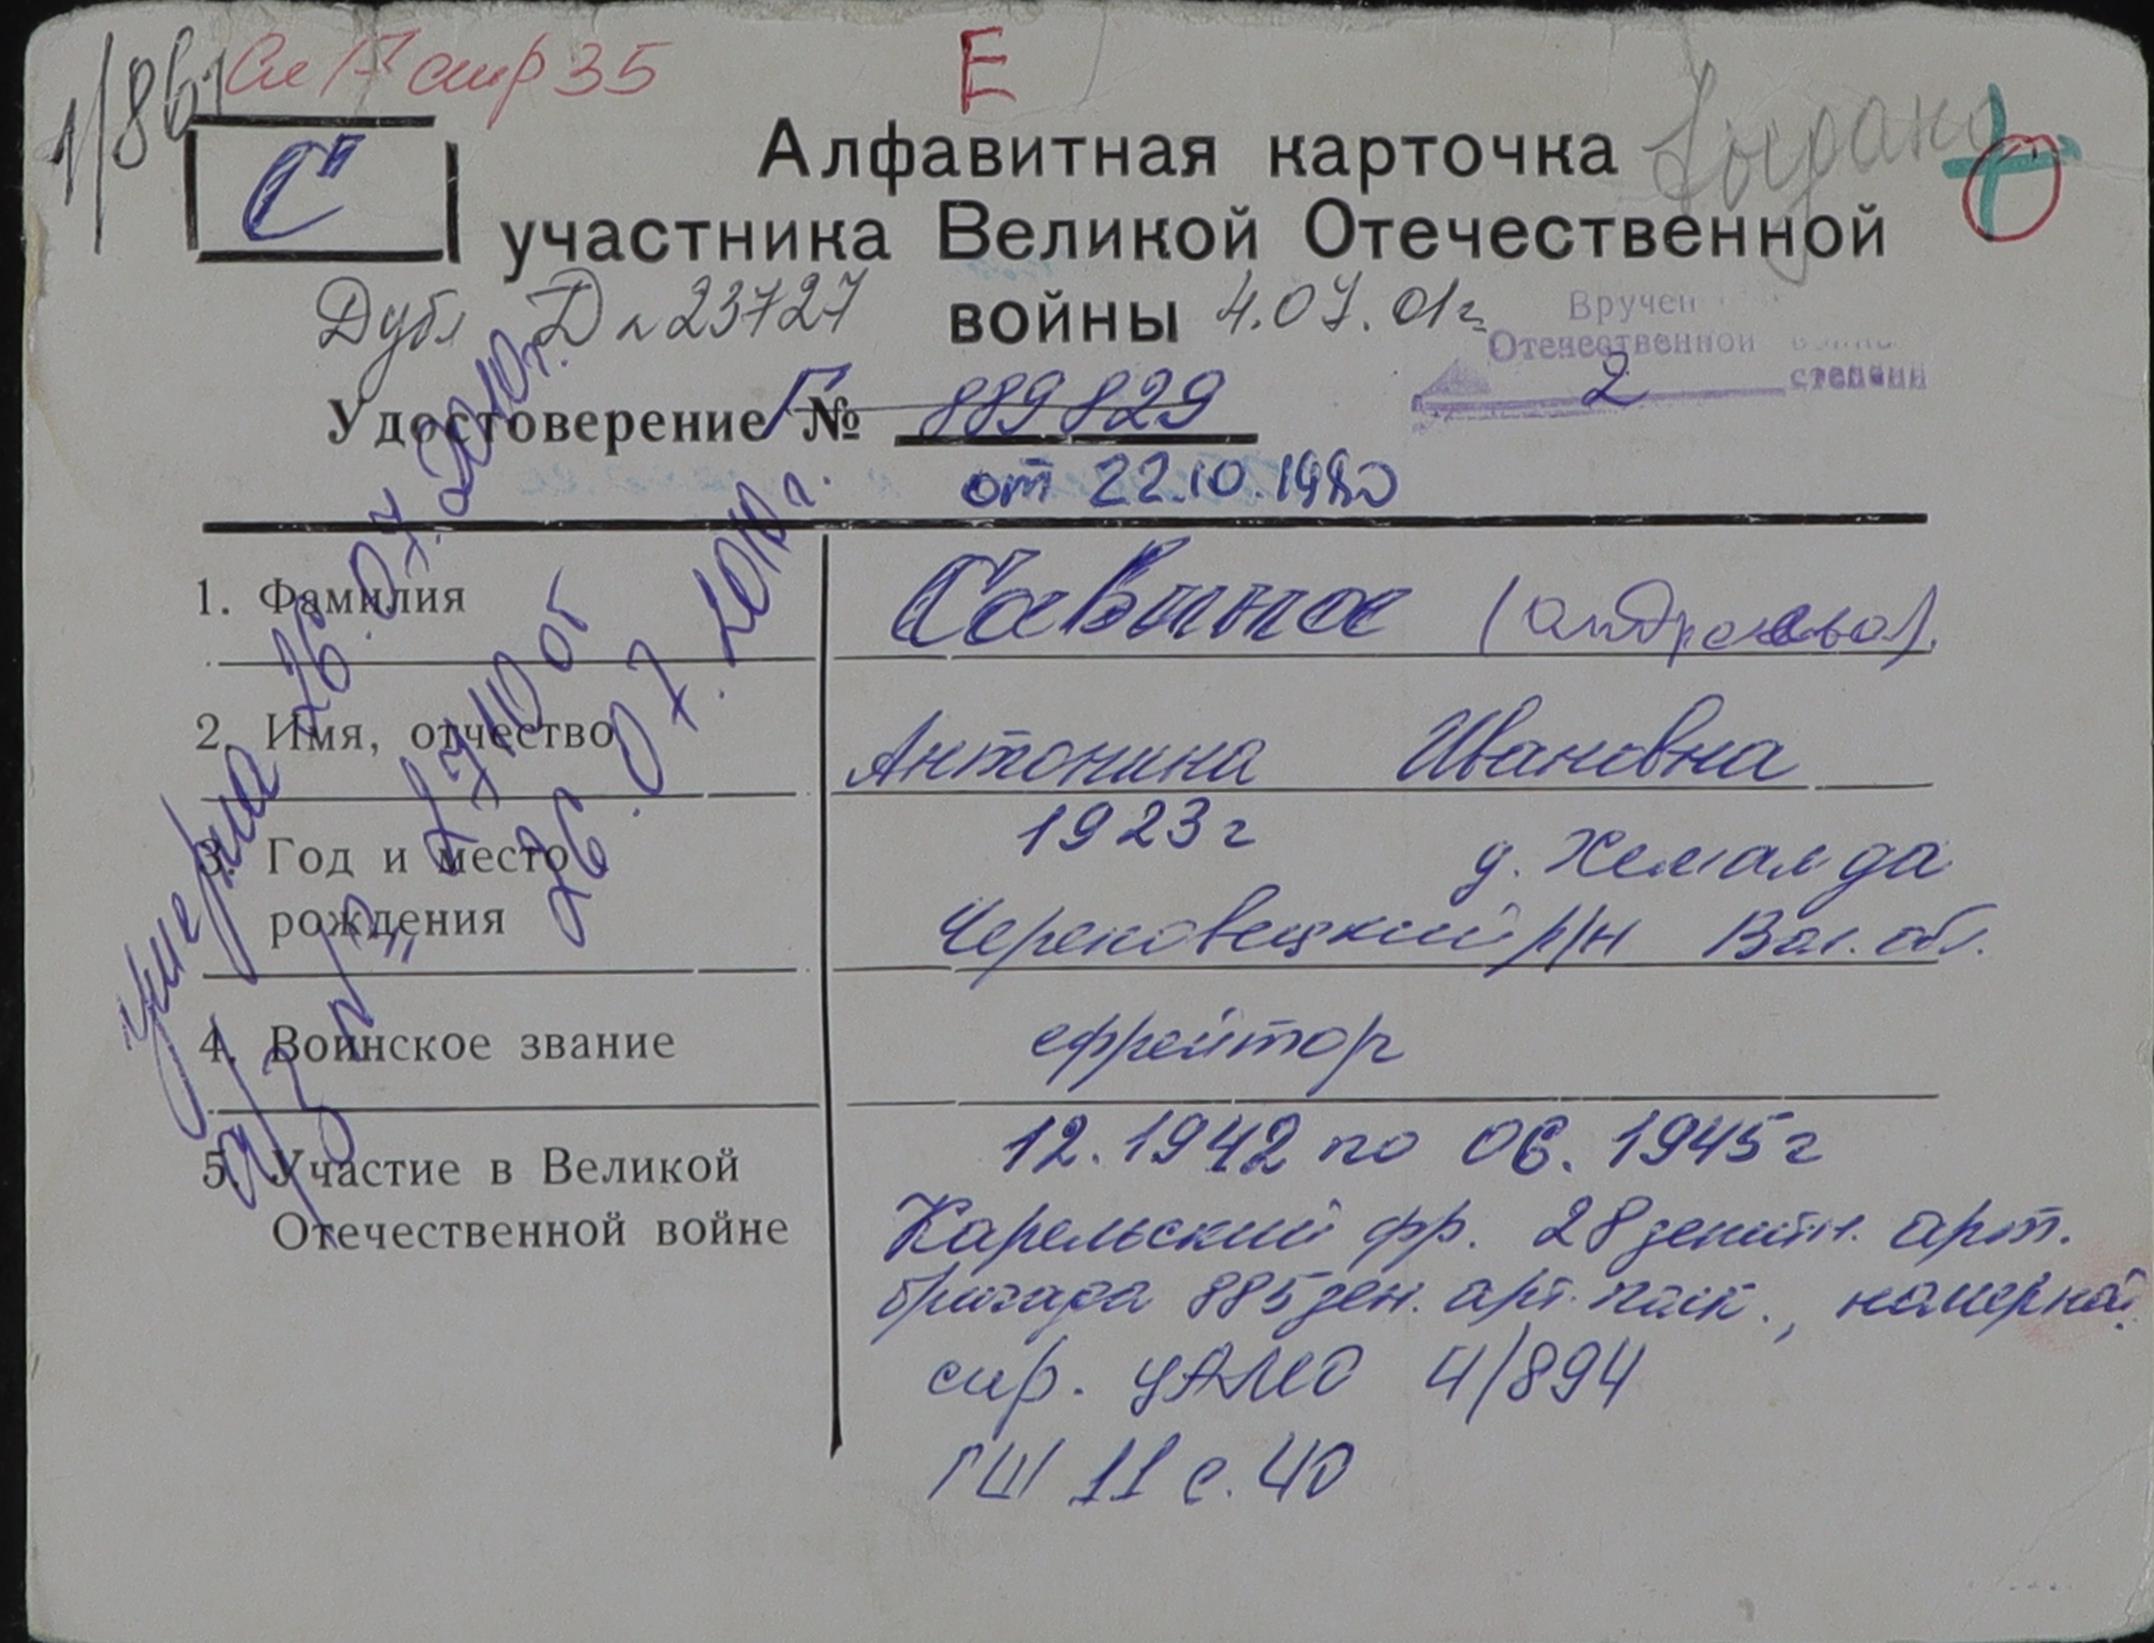 1/861 Сп 17 стр 35 Е
"С"
Алфавитная карточка
участника Великой Отечественной
войны
Дубл Д № 23727 4.07.01г
Вручен
Отечественной войны
2 степени
Удостоверение Г № 889829
от 22.10.1980
1. Фамилия Савина (Андреева).
2. Имя, отчество Антонина Ивановна
3. Год и место 1923г д. Хемалда
рождения Череповецкий р/н Вол. обл.
4. Воинское звание ефрейтор
5. Участие в Великой 12.1942 по 06.1945г
Отечественной войне Карельский фр. 28 зенитн. арт.
бригада 885 зен. арт. полк.,
спр. ЦАМО 4/894
ГШ 11 с. 40
умерла 26.07.2010г.
а/з № 2710 от
26.07.2010г.